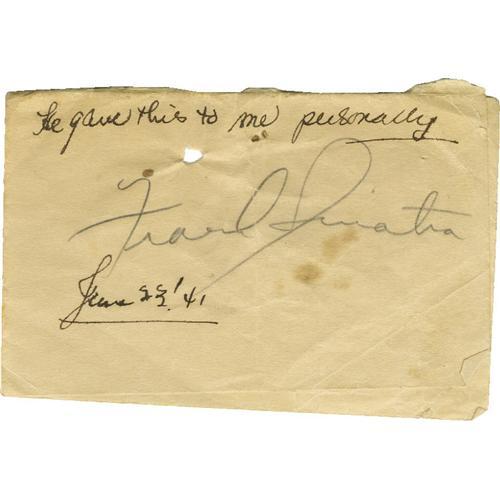 He gave this to me personally
Frank Sinatra
June 22' 41